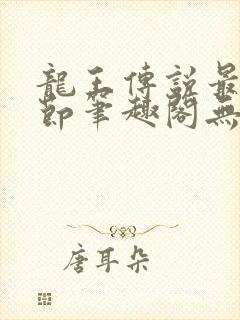 龍王傳說最
節筆趣閣無
唐耳朵